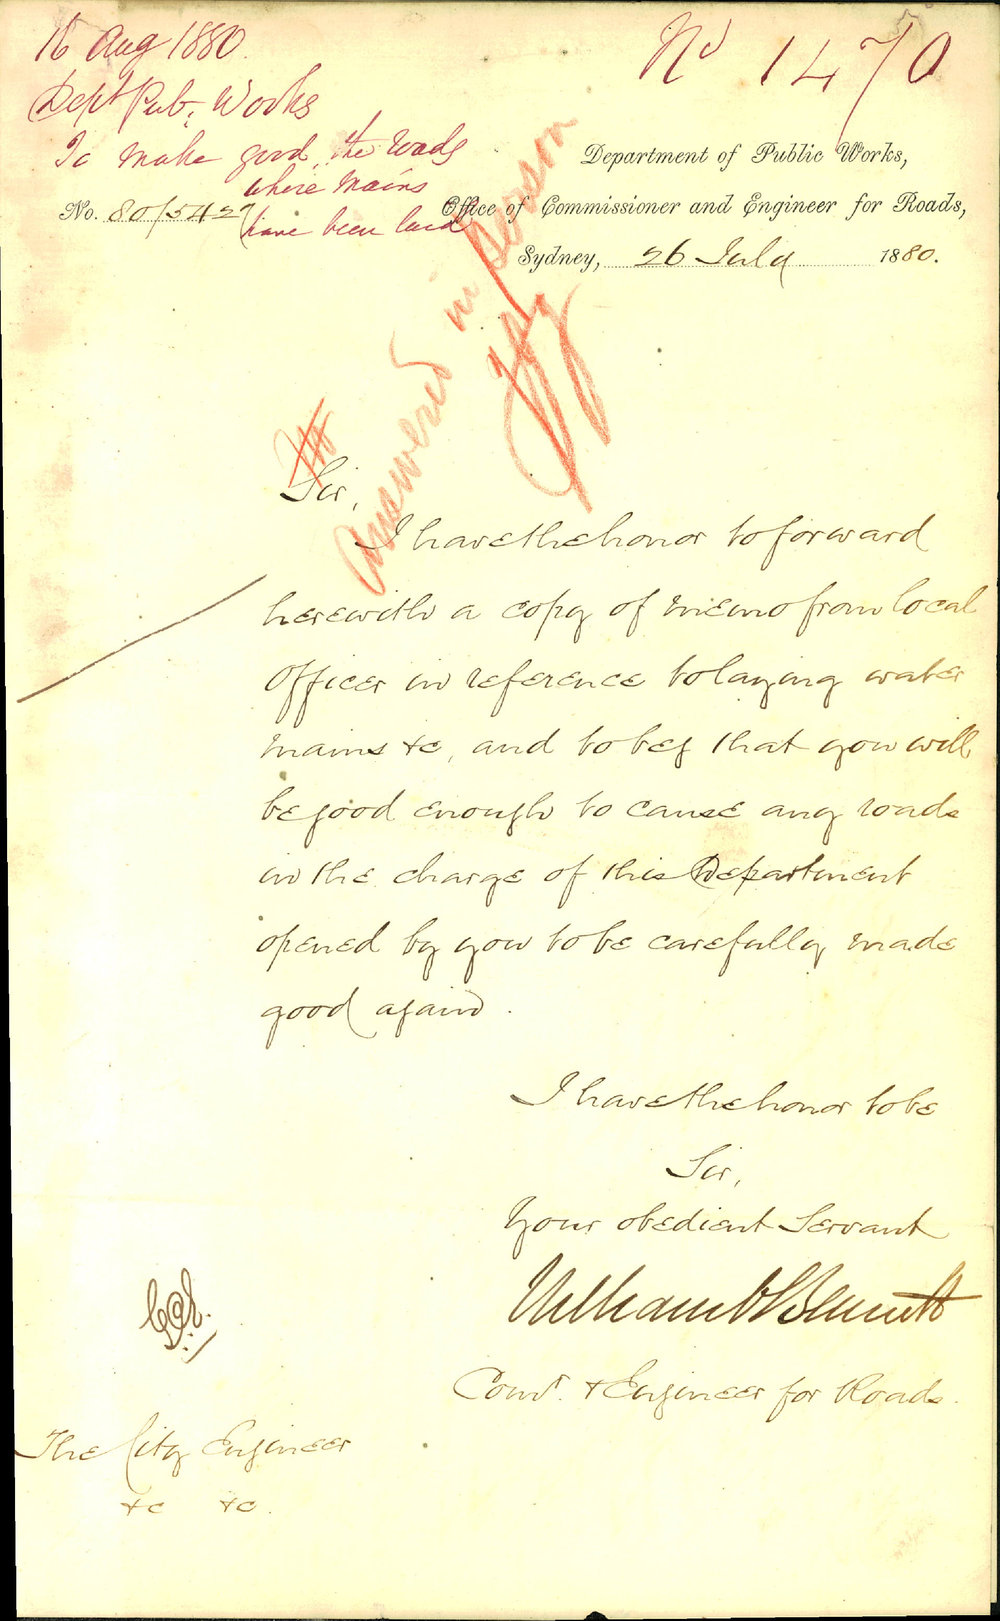 16 Aug 1880.
Nº 1470
Dept Pub: Works
To make good the roads
where mains
have been laid
Department of Public Works,
No. 80/5427
Office of Commissioner and Engineer for Roads,
Sydney, 26 July 1880.
Answered in person
Sir,
I have the honor to forward
herewith a copy of memo from local
Officer in reference to laying water
mains &c, and to beg that you will
be good enough to cause any roads
in the charge of this Department
opened by you to be carefully made
good again.
I have the honor to be
Sir,
Your obedient Servant
William C Bennett
Comr. & Engineer for Roads.
The City Engineer
&c &c.